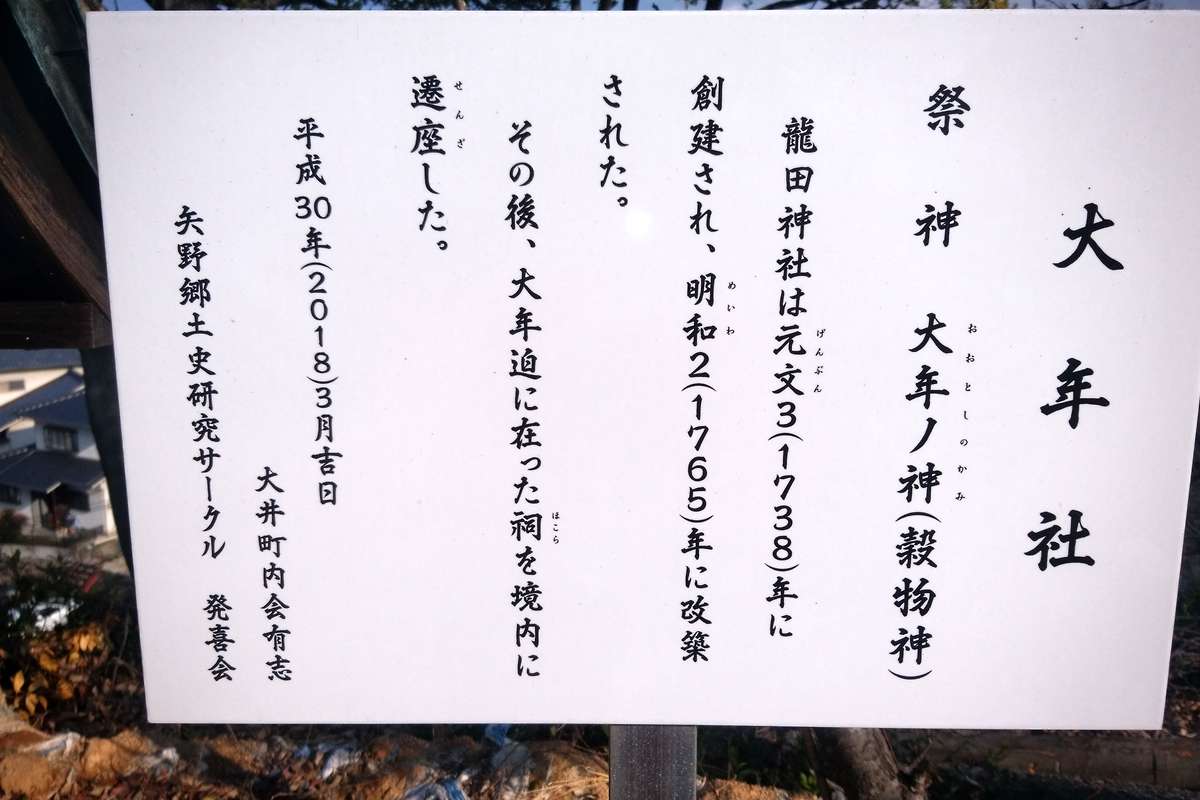 大年社
祭神 大年ノ神(穀物神)
おおとしのかみ
龍田神社は元文3(1738)年に
げんぶん
創建され、明和2(1765)年に改築
めいわ
された。
その後、大年迫に在った祠を境内に
ほこら
遷座した。
せんざ
平成30年(2018)3月吉日
大井町内会有志
矢野郷土史研究サークル 発喜会